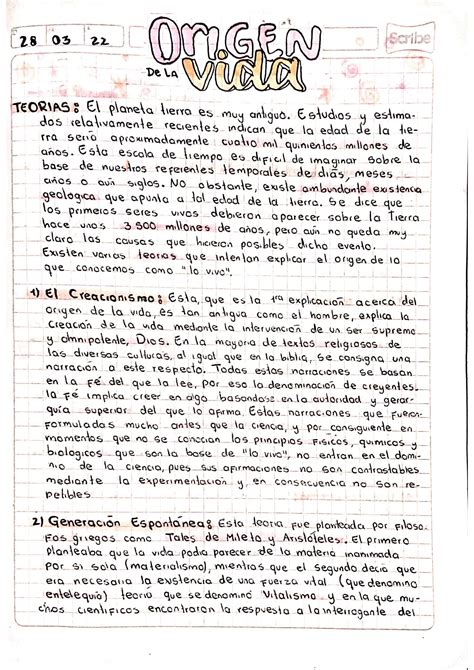 28 03 22
ORIGEN
Scribe
DE LA vida
TEORIAS: El planeta tierra es muy antiguo. Estudios y estima-
dos relativamente recientes indican que la edad de la tie-
rra seria aproximadamente cuatro mil quinientos millones de
años. Esta escala de tiempo es dificil de imaginar sobre la
base de nuestros referentes temporales de días, meses
años o aún siglos. No obstante, existe ambundante existencia
geologica que apunta a tal edad de la tierra. Se dice que
los primeros seres vivos debieron aparecer sobre la Tierra
hace unos 3.500 millones de años, pero aún no queda muy
claro las causas que hicieron posibles dicho evento.
Existen varias teorias que intentan explicar el origen de lo
que conocemos como "lo vivo".
1) El Creacionismo: Esta, que es la 1ra explicación acerca del
origen de la vida, es tan antigua como el hombre, explica la
creación de la vida mediante la intervención de un ser supremo
y omnipotente, Dios. En la mayoria de textos religiosos de
las diversas culturas, al igual que en la biblia, se consigna una
narración a este respecto. Todas estas narraciones se basan
en la fé del que la lee, por eso la denominación de creyentes.
la fé implica creer en algo basandose en la autoridad y gerar-
quia superior del que lo afirma. Estas narraciones que fueron
formuladas mucho antes que la ciencia, y por consiguiente en
momentos que no se conocian los principios físicos, químicos y
biologicos que son la base de "lo vivo", no entran en el domi-
nio de la ciencia, pues sus afirmaciones no son contrastables
mediante la experimentación y, en consecuencia no son re-
petibles
2) Generación Espontánea: Esta teoria fue planteada por filoso-
fos griegos como Tales de Mileto y Aristóteles. El primero
planteaba que la vida podia parecer de la materia inanimada
por si sola (materialismo), mientras que el segundo decia que
era necesaria la existencia de una fuerza vital (que denomino
entelequia) teoria que se denominó Vitalismo y en la que mu-
chos cientificos encontraron la respuesta a la interrogante del